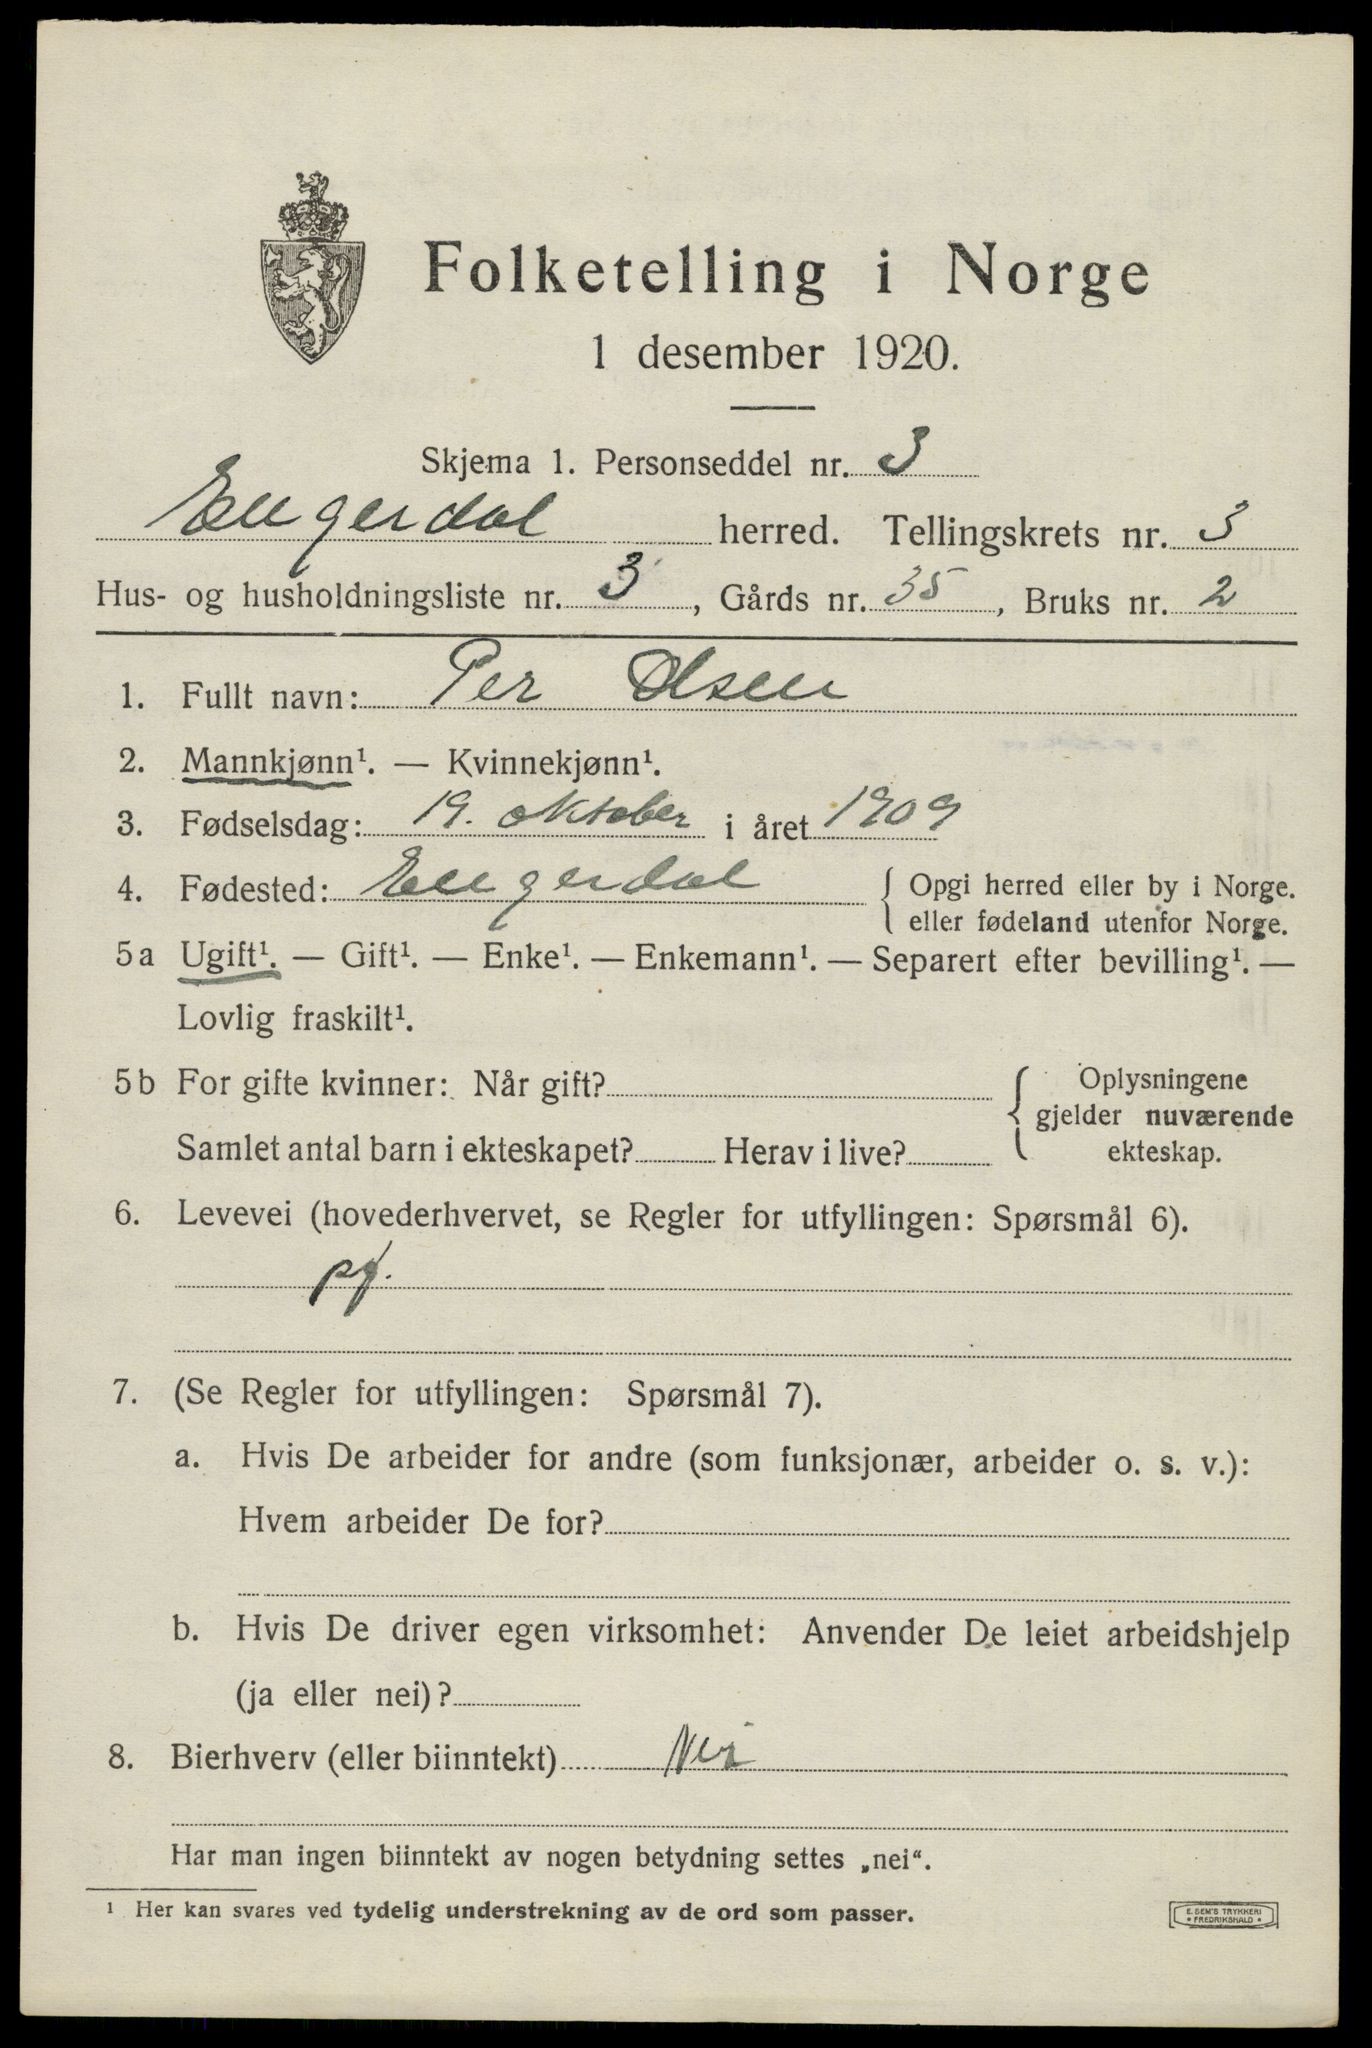 Folketelling i Norge
1 desember 1920.
Skjema 1. Personseddel nr. 3
Engerdal herred. Tellingskrets nr. 3
Hus- og husholdningsliste nr. 3, Gårds nr. 35, Bruks nr. 2
1. Fullt navn: Per Olsen
2. Mannkjønn¹. — Kvinnekjønn¹.
3. Fødselsdag: 19. oktober i året 1909
4. Fødested: Engerdal { Opgi herred eller by i Norge.
eller fødeland utenfor Norge.
5a Ugift¹. — Gift¹. — Enke¹. — Enkemann¹. — Separert efter bevilling¹. —
Lovlig fraskilt¹.
5b For gifte kvinner: Når gift? { Oplysningene
gjelder nuværende
Samlet antal barn i ekteskapet? Herav i live? ekteskap.
6. Levevei (hovederhvervet, se Regler for utfyllingen: Spørsmål 6).
7. (Se Regler for utfyllingen: Spørsmål 7).
a. Hvis De arbeider for andre (som funksjonær, arbeider o. s. v.):
Hvem arbeider De for?
b. Hvis De driver egen virksomhet: Anvender De leiet arbeidshjelp
(ja eller nei)?
8. Bierhverv (eller biinntekt) Nei
Har man ingen biinntekt av nogen betydning settes „nei“.
¹ Her kan svares ved tydelig understrekning av de ord som passer.
E. SEM'S TRYKKERI
* FREDRIKSHALD *